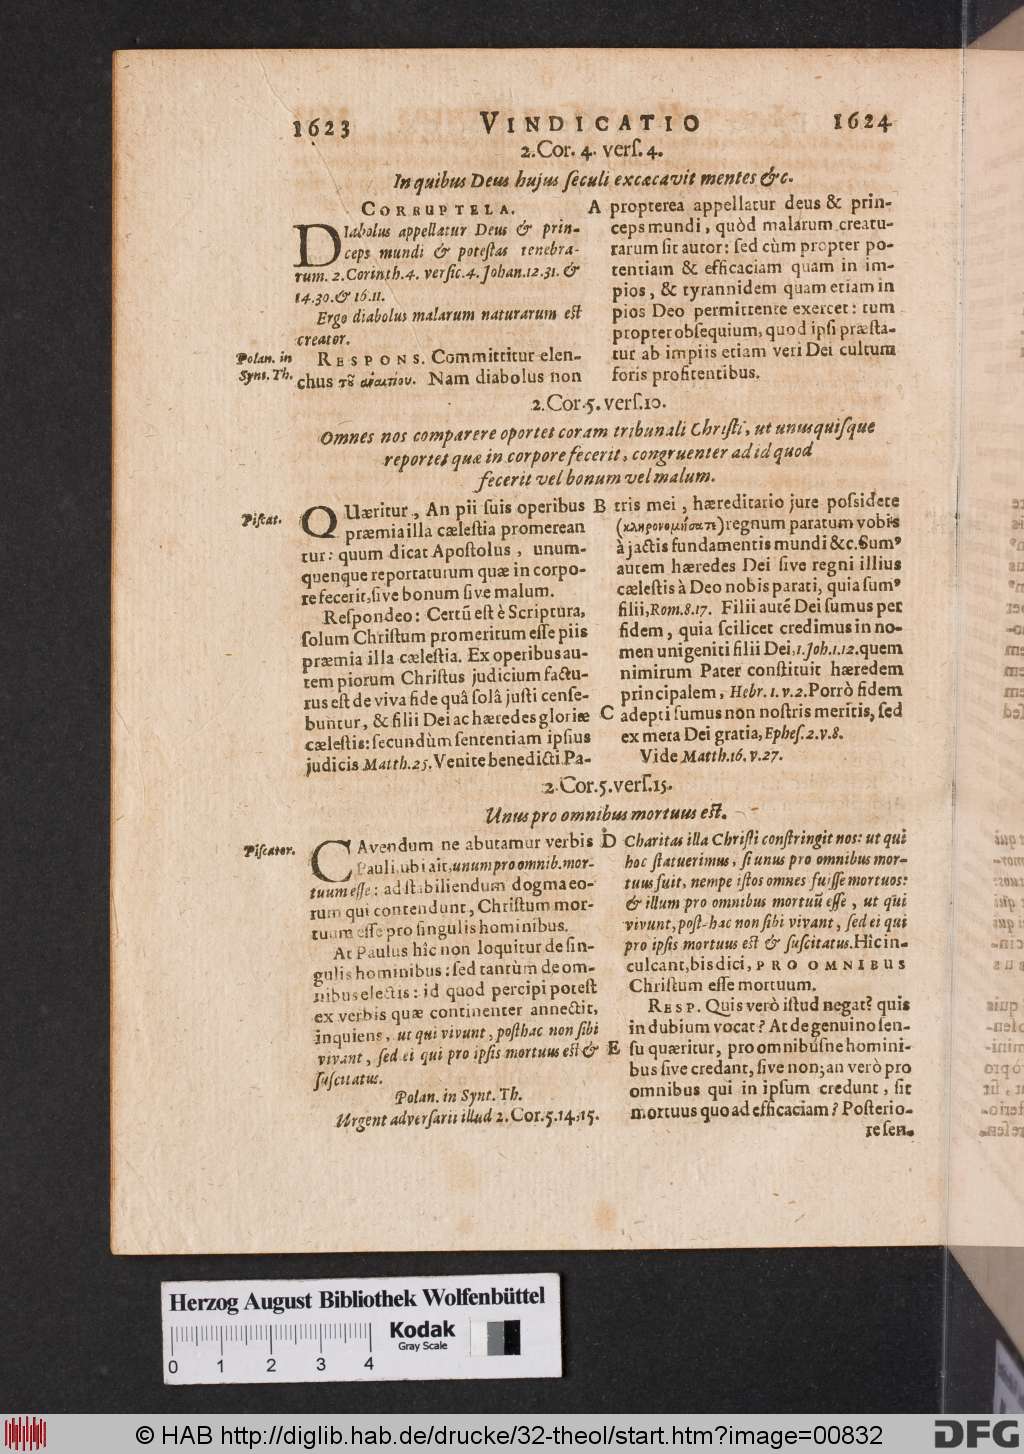 1623 VINDICATIO 1624
2. Cor. 4. verſ. 4.
In quibus Deus hujus ſeculi excæcavit mentes &c.
CORRUPTELA.
DIabolus appellatur Deus & prin-
ceps mundi & poteſtas tenebra-
rum. 2. Corinth. 4. verſic. 4. Johan. 12. 31. &
14. 30. & 16. 11.
Ergo diabolus malarum naturarum eſt
creator.
Polan. in
Synt. Th.
RESPONS. Committitur elen-
chus τȣ̃ ἀναιτίου. Nam diabolus non
A propterea appellatur deus & prin-
ceps mundi, quòd malarum creatu-
rarum ſit autor: ſed cùm propter po-
tentiam & efficaciam quam in im-
pios, & tyrannidem quam etiam in
pios Deo permittente exercet: tum
propter obſequium, quod ipſi præſta-
tur ab impiis etiam veri Dei cultum
foris profitentibus.
2. Cor. 5. verſ. 10.
Omnes nos comparere oportet coram tribunali Chriſti, ut unusquiſque
reportet quæ in corpore fecerit, congruenter ad id quod
fecerit vel bonum vel malum.
Piſcat.
QUæritur, An pii ſuis operibus
præmia illa cæleſtia promerean
tur: quum dicat Apoſtolus, unum-
quenque reportaturum quæ in corpo-
re fecerit, ſive bonum ſive malum.
Reſpondeo: Certũ eſt è Scriptura,
ſolum Chriſtum promeritum eſſe piis
præmia illa cæleſtia. Ex operibus au-
tem piorum Chriſtus judicium factu-
rus eſt de viva fide quâ ſolâ juſti cenſe-
buntur, & filii Dei ac hæredes gloriæ
cæleſtis: ſecundùm ſententiam ipſius
judicis Matth. 25. Venite benedicti Pa-
B tris mei, hæreditario jure poſſidete
(κληρονομήσατε) regnum paratum vobis
à jactis fundamentis mundi &c. Sumꝰ
autem hæredes Dei ſive regni illius
cæleſtis à Deo nobis parati, quia ſumꝰ
filii, Rom. 8. 17. Filii autẽ Dei ſumus per
fidem, quia ſcilicet credimus in no-
men unigeniti filii Dei, 1. Joh. 1. 12. quem
nimirum Pater conſtituit hæredem
principalem, Hebr. 1. v. 2. Porrò fidem
C adepti ſumus non noſtris meritis, ſed
ex mera Dei gratia, Epheſ. 2. v. 8.
Vide Matth. 16. v. 27.
2. Cor. 5. verſ. 15.
Unus pro omnibus mortuus eſt.
Piſcator.
CAvendum ne abutamur verbis
Pauli, ubi ait, unum pro omnib. mor-
tuum eſſe: ad ſtabiliendum dogma eo-
rum qui contendunt, Chriſtum mor-
tuum eſſe pro ſingulis hominibus.
At Paulus hîc non loquitur de ſin-
gulis hominibus: ſed tantùm de om-
nibus electis: id quod percipi poteſt
ex verbis quæ continenter annectit,
inquiens, ut qui vivunt, poſthac non ſibi
vivant, ſed ei qui pro ipſis mortuus eſt &
ſuſcitatus.
Polan. in Synt. Th.
Urgent adverſarii illud 2. Cor. 5. 14. 15.
D Charitas illa Chriſti conſtringit nos: ut qui
hoc ſtatuerimus, ſi unus pro omnibus mor-
tuus fuit, nempe iſtos omnes fuiſſe mortuos:
& illum pro omnibus mortuũ eſſe, ut qui
vivunt, poſt-hac non ſibi vivant, ſed ei qui
pro ipſis mortuus eſt & ſuſcitatus. Hîc in-
culcant, bis dici, PRO OMNIBUS
Chriſtum eſſe mortuum.
RESP. Quis verò iſtud negat? quis
in dubium vocat? At de genuino ſen-
E ſu quæritur, pro omnibuſne homini-
bus ſive credant, ſive non; an verò pro
omnibus qui in ipſum credunt, ſit
mortuus quo ad efficaciam? Poſterio-
re ſen-
Herzog August Bibliothek Wolfenbüttel
Kodak
Gray Scale
0 1 2 3 4
© HAB http://diglib.hab.de/drucke/32-theol/start.htm?image=00832
DFG